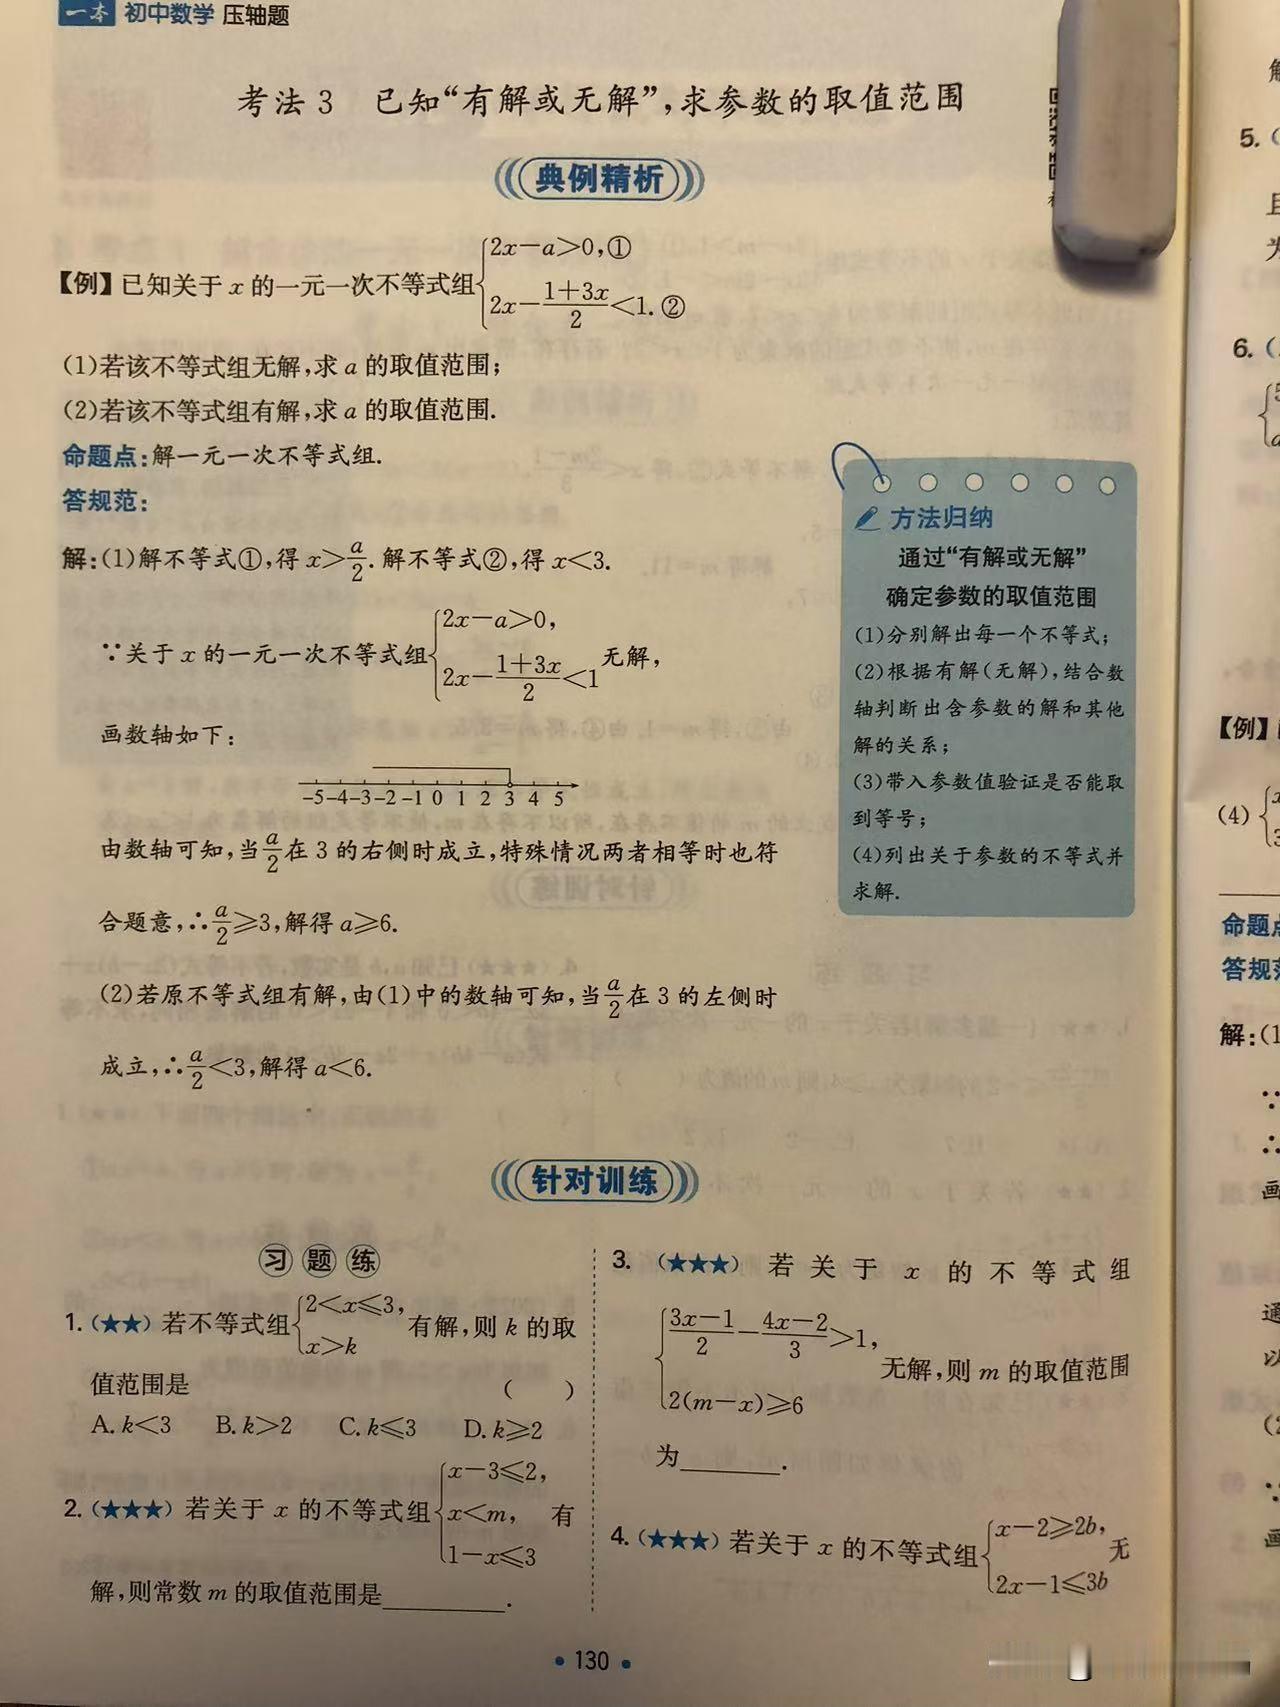 一本 初中数学 压轴题
考法 3 已知“有解或无解”,求参数的取值范围
典例精析
【例】已知关于 x 的一元一次不等式组{2x−a>0,①
2x−(1+3x)/2<1.②
(1)若该不等式组无解,求 a 的取值范围;
(2)若该不等式组有解,求 a 的取值范围.
命题点:解一元一次不等式组.
答规范:
解:(1)解不等式①,得 x>a/2.解不等式②,得 x<3.
∵关于 x 的一元一次不等式组{2x−a>0,
2x−(1+3x)/2<1 无解,
画数轴如下:
−5−4−3−2 −1 0 1 2 3 4 5
由数轴可知,当a/2在 3 的右侧时成立,特殊情况两者相等时也符
合题意,∴a/2≥3,解得 a≥6.
(2)若原不等式组有解,由(1)中的数轴可知,当a/2在 3 的左侧时
成立,∴a/2<3,解得 a<6.
方法归纳
通过“有解或无解”
确定参数的取值范围
(1)分别解出每一个不等式;
(2)根据有解(无解),结合数
轴判断出含参数的解和其他
解的关系;
(3)带入参数值验证是否能取
到等号;
(4)列出关于参数的不等式并
求解.
针对训练
习题练
1.(★★)若不等式组{2<x≤3,
x>k 有解,则 k 的取
值范围是 ( )
A. k<3 B. k>2 C. k≤3 D. k≥2
2.(★★★)若关于 x 的不等式组{x−3≤2,
x<m, 有
1−x≤3
解,则常数 m 的取值范围是 .
3.(★★★)若关于 x 的不等式组
{(3x−1)/2−(4x−2)/3>1,
2(m−x)≥6 无解,则 m 的取值范围
为 .
4.(★★★)若关于 x 的不等式组{x−2≥2b,
2x−1≤3b 无
• 130 •
5.
6.
【例】
(4)
命题点
答规范
解:(1
∵
∴
画
通
以
(2
∵
画